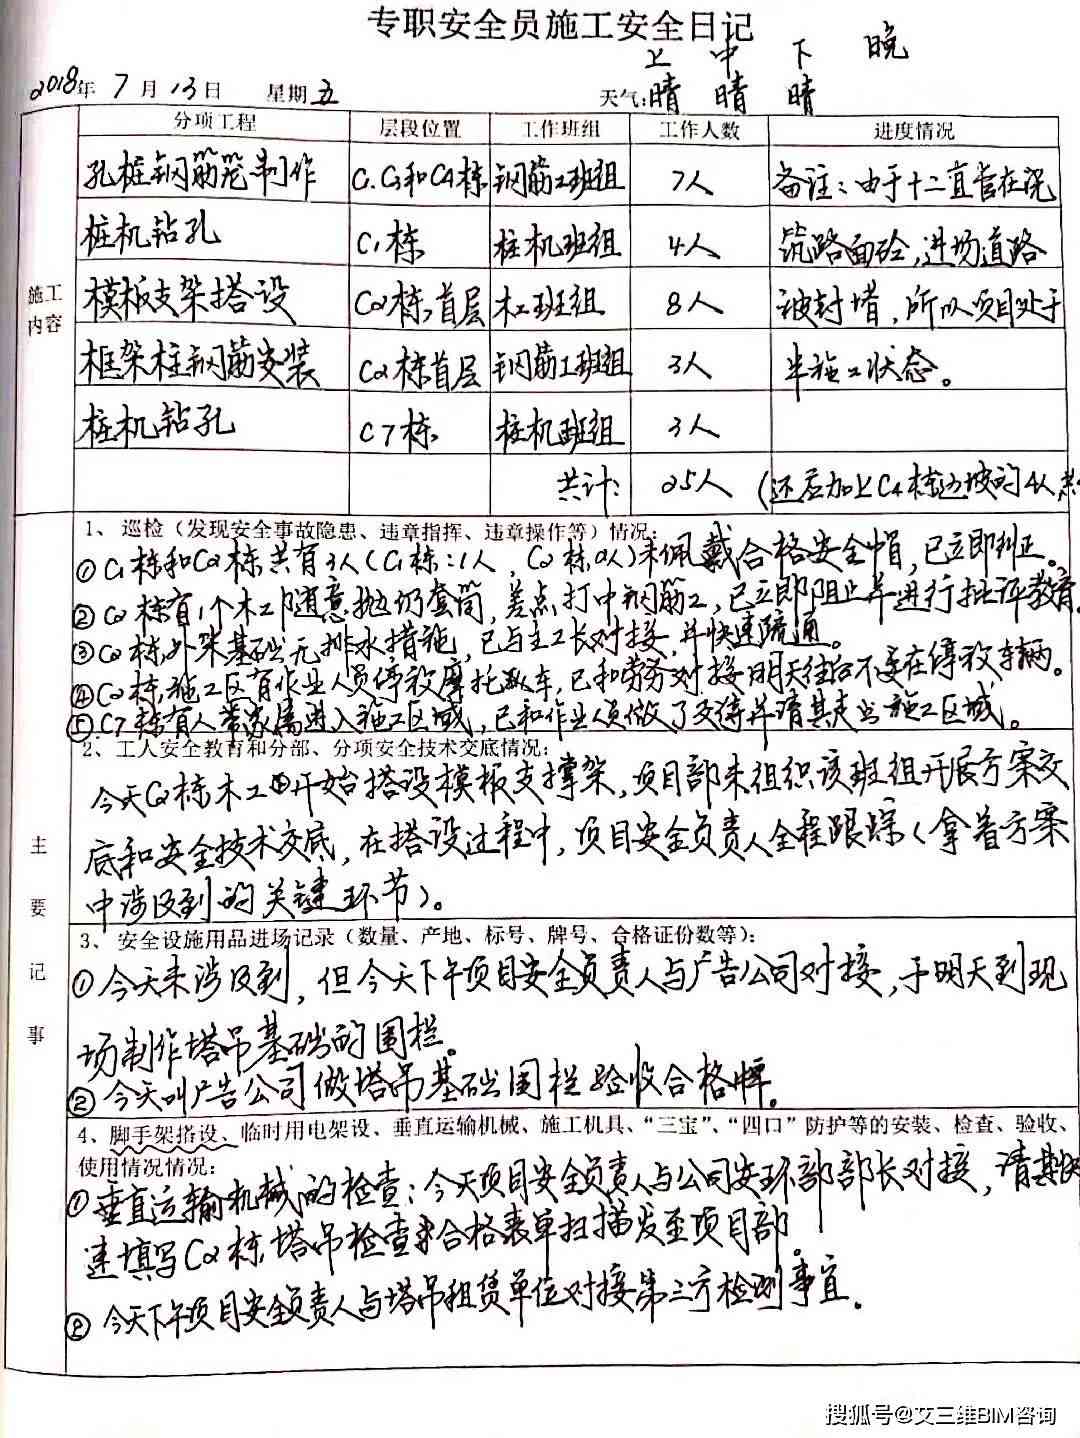 专职安全员施工安全日记
上 中 下 晚
2018年 7 月 13 日 星期 五 天气: 晴 晴 晴
分项工程 层段位置 工作班组 工作人数 进度情况
孔桩钢筋笼制作 C1、C3和C4栋 钢筋工班组 7人 备注：由于十二直管在浇
桩机钻孔 C1栋 桩机班组 4人 筑路面砼,进场道路
施工 模板支架搭设 C2栋,首层 木工班组 8人 被封堵，所以项目处于
内容
框架柱钢筋安装 C2栋首层 钢筋工班组 3人 半施工状态。
桩机钻孔 C7栋 桩机班组 3人
共计: 25人 (还应加上C4栋边坡的4人
1、巡检（发现安全事故隐患、违章指挥、违章操作等）情况:
①C1栋和C2栋共有3人(C1栋:1人，C2栋2人)未佩戴合格安全帽,已立即纠正。
②C2栋有1个木工随意抛扔套筒,差点打中钢筋工,已立即阻止并进行批评教育
③C2栋,外架基础无排水措施,已与主工长对接,并快速疏通。
④C2栋,施工区有作业人员停放摩托车,已和劳务对接明天往后不要在停放车辆。
⑤C7栋有人带家属进入施工区域,已和作业人员做了交待并请其走出施工区域。
2、工人安全教育和分部、分项安全技术交底情况:
今天C2栋木工开始搭设模板支撑架,项目部未组织该班组开展方案交
底和安全技术交底,在搭设过程中,项目安全负责人全程跟踪(拿着方案
中涉及到的关键环节)。
主要记事
3、安全设施用品进场记录（数量、产地、标号、牌号、合格证份数等）:
①今天未涉及到,但今天下午项目安全负责人与广告公司对接,于明天到现
场制作塔吊基础的围栏。
②今天叫广告公司做塔吊基础围栏验收合格牌。
4、脚手架搭设、临时用电架设、垂直运输机械、施工机具、“三宝”、“四口”防护等的安装、检查、验收、
使用情况情况:
①垂直运输机械的检查:今天项目安全负责人与公司安环部部长对接,请其快
速填写C2栋,塔吊检查合格表单扫描发至项目部。
②今天下午项目安全负责人与塔吊租赁单位对接第三方检测事宜.
搜狐号@艾三维BIM咨询